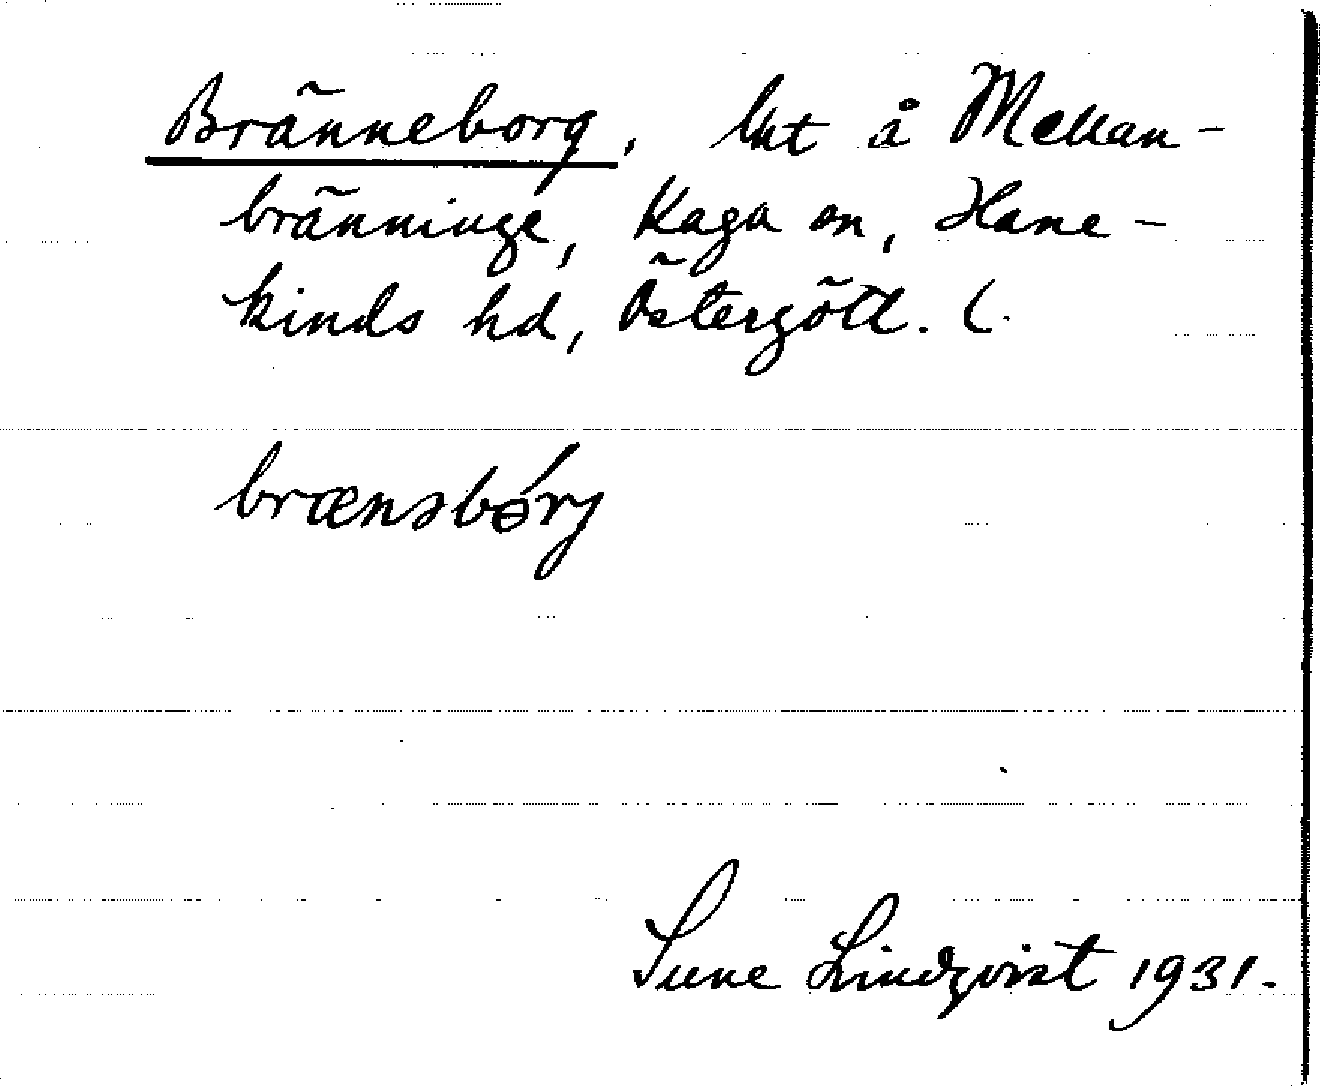 Bränneborg, lht å Mellan-
bränninge, Kaga sn, Hane-
kinds hd, Östergötl. (.
brænəbórj
Sune Lindqvist 1931.